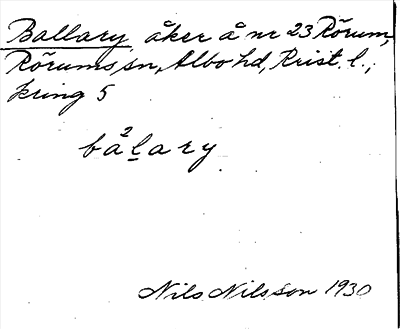 Ballary åker å nr 23 Rörum,
Rörums sn, Albo hd, Krist. l.,
kring 5
bå²l̲ary
Nils Nilsson 1930